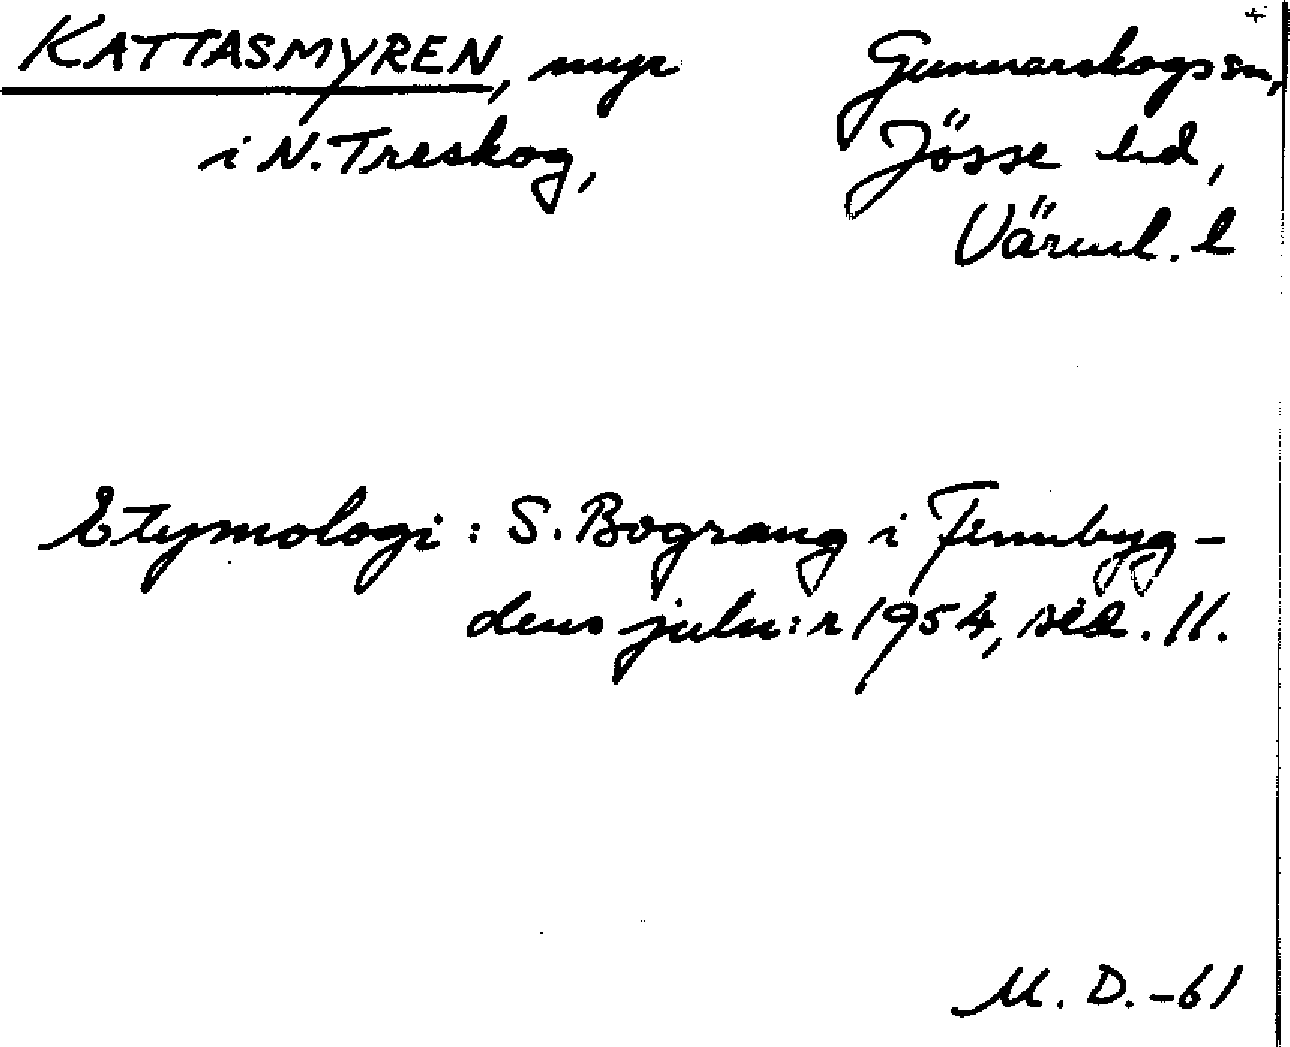 KATTASMYREN, myr
i N. Treskog,
Gunnarskogs sn,
Jösse hd,
Värml. l
Etymologi: S. Bograng i Finnbyg-
dens julnr:r 1954, sid. 11.
M. D. -61